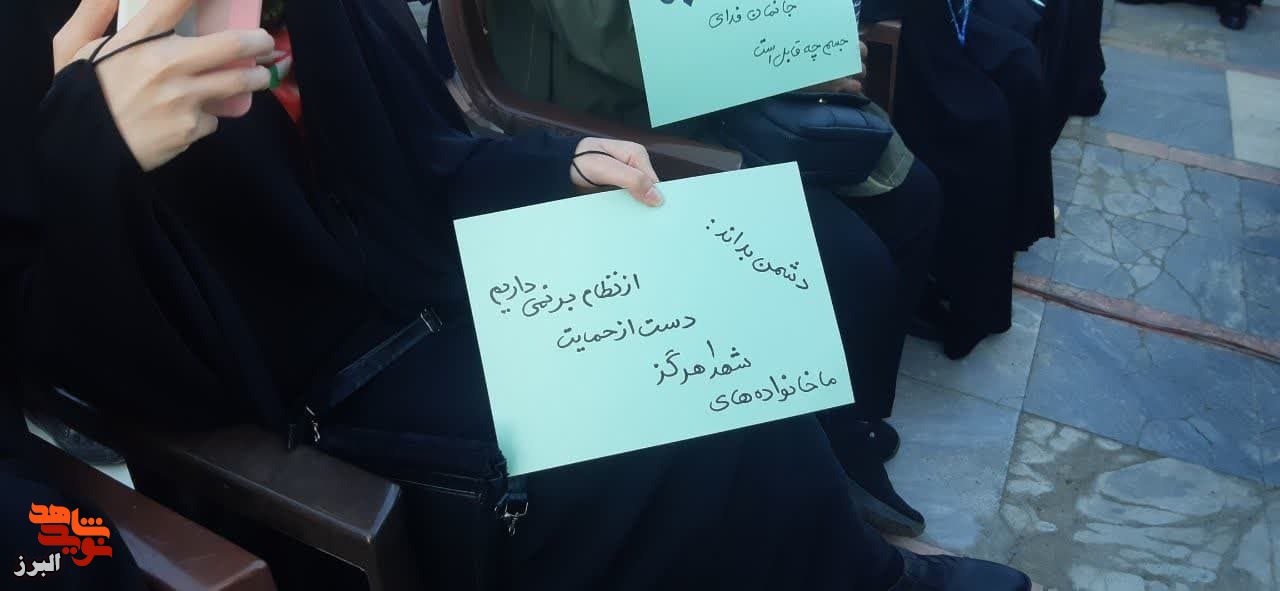 جانمان فدای
جسم چه قابل است
دشمن بداند:
ما خانواده‌های
شهدا هرگز
دست از حمایت
از نظام برنمی‌داریم
نوید شاهد
البرز